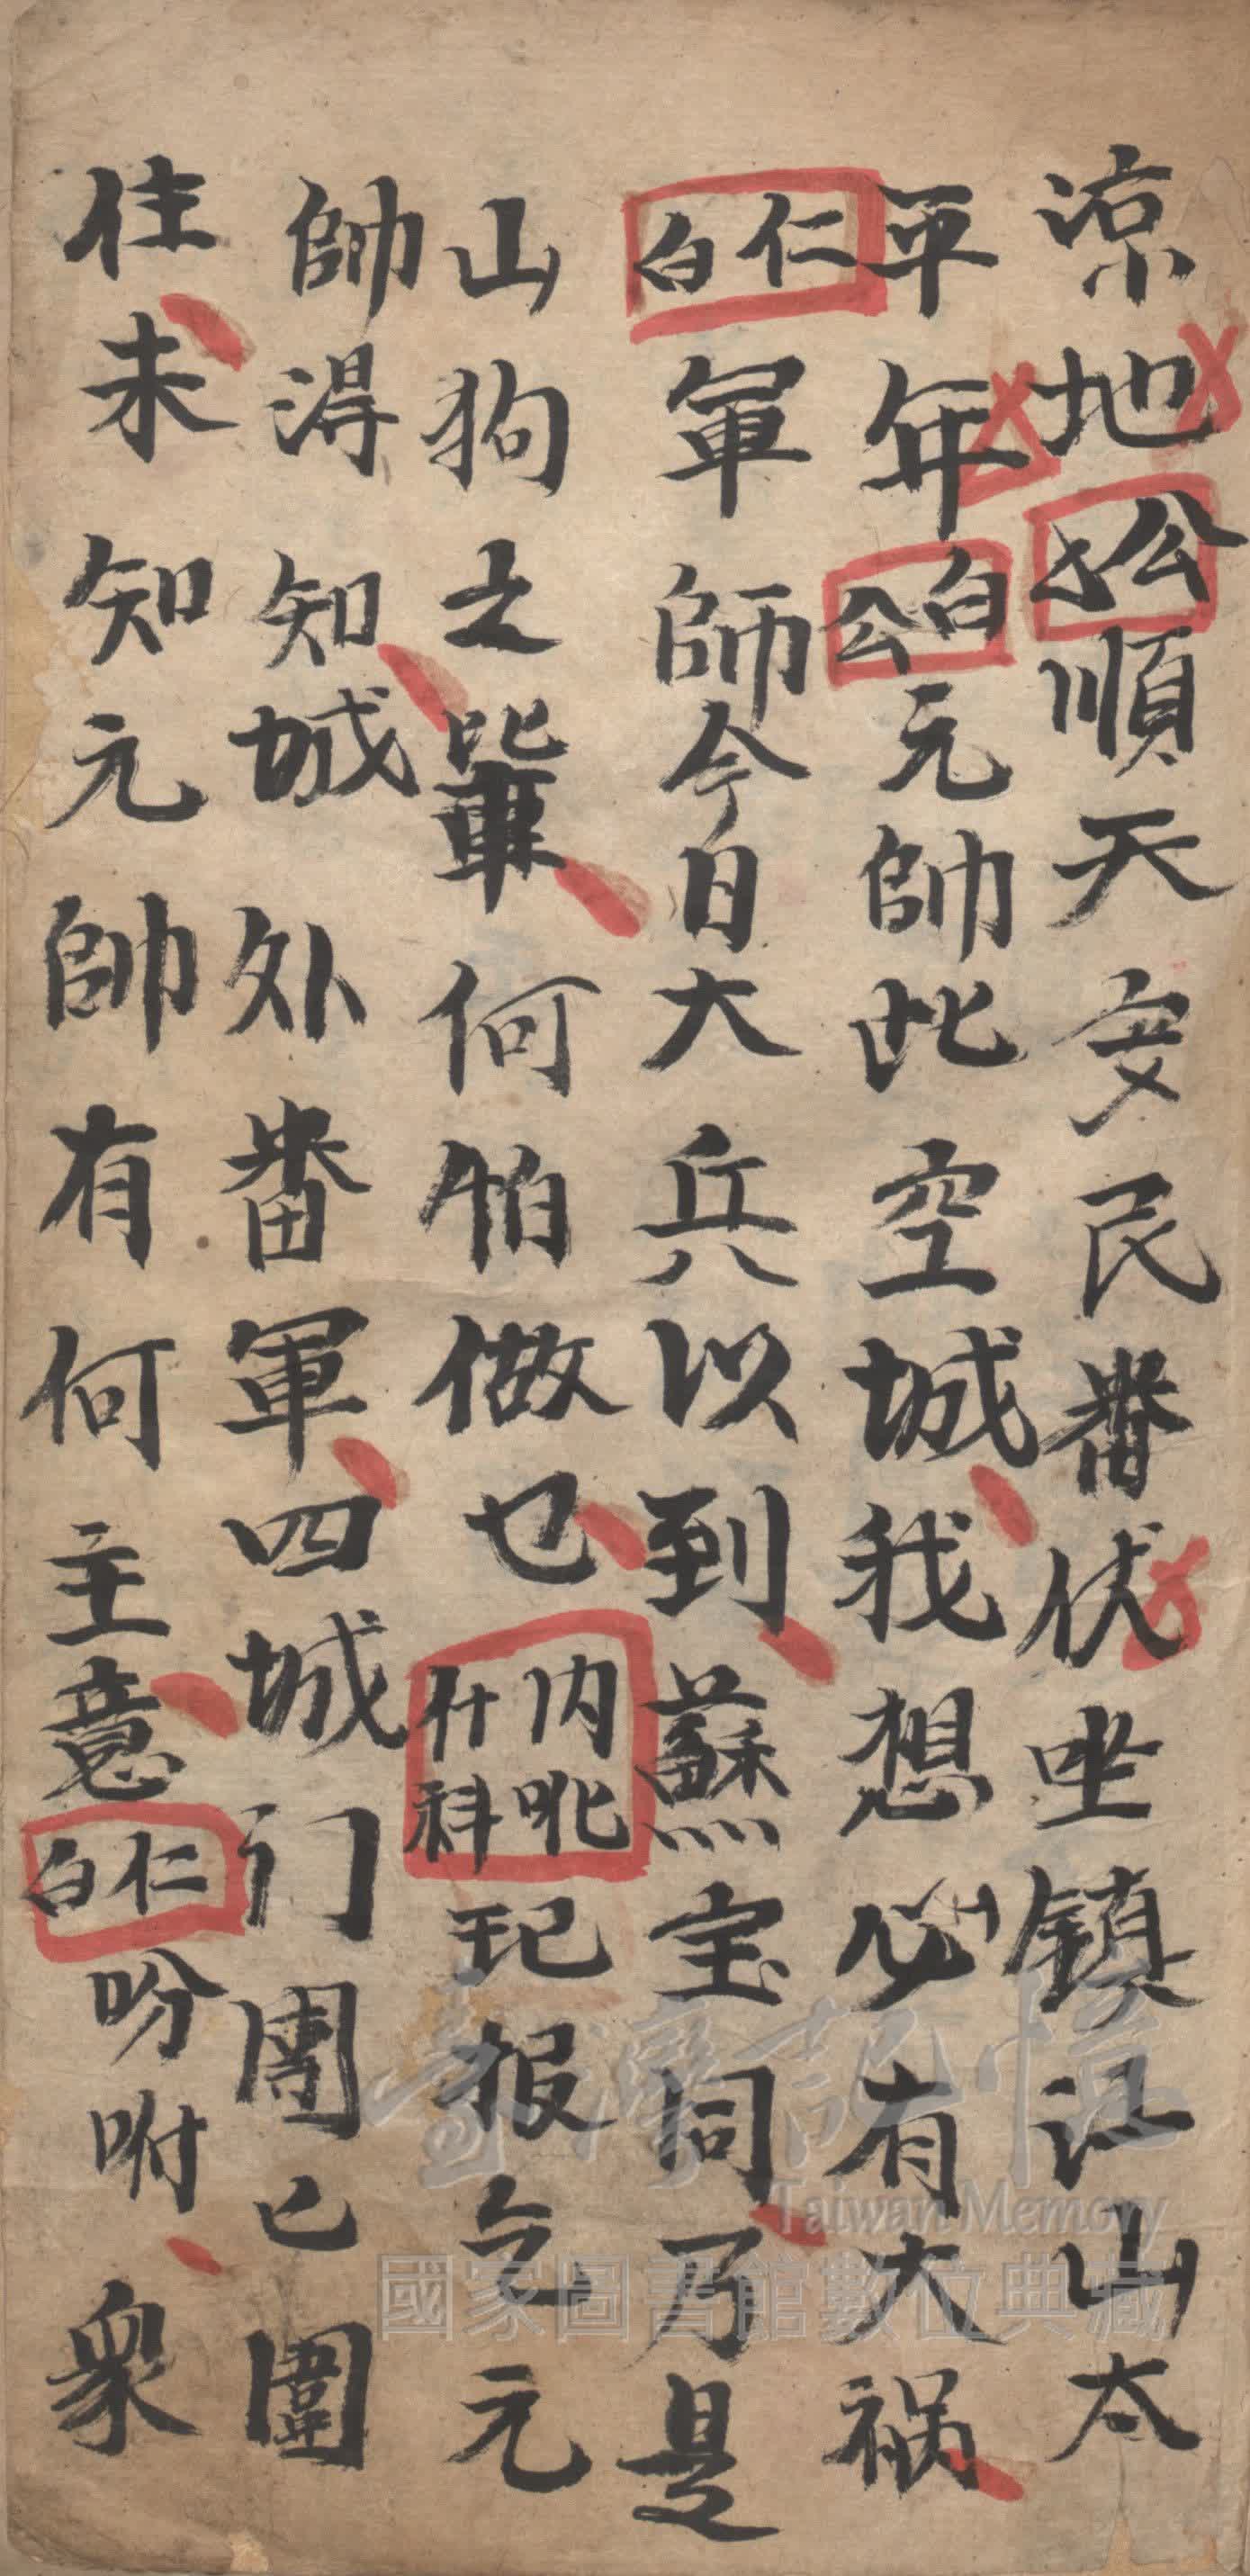 涼地公才順天安民番伏坐鎮江山太
平年白公元帥此空城我想必有大禍
仁白軍師今日大兵以到蘇宝同乃是
山狗之輩何怕做乜内吪什科玘报乞元
帥淂知城外番軍四城门團亡圍
住未知元帥有何主意仁白吩咐衆
臺灣記憶
Taiwan Memory
國家圖書館數位典藏